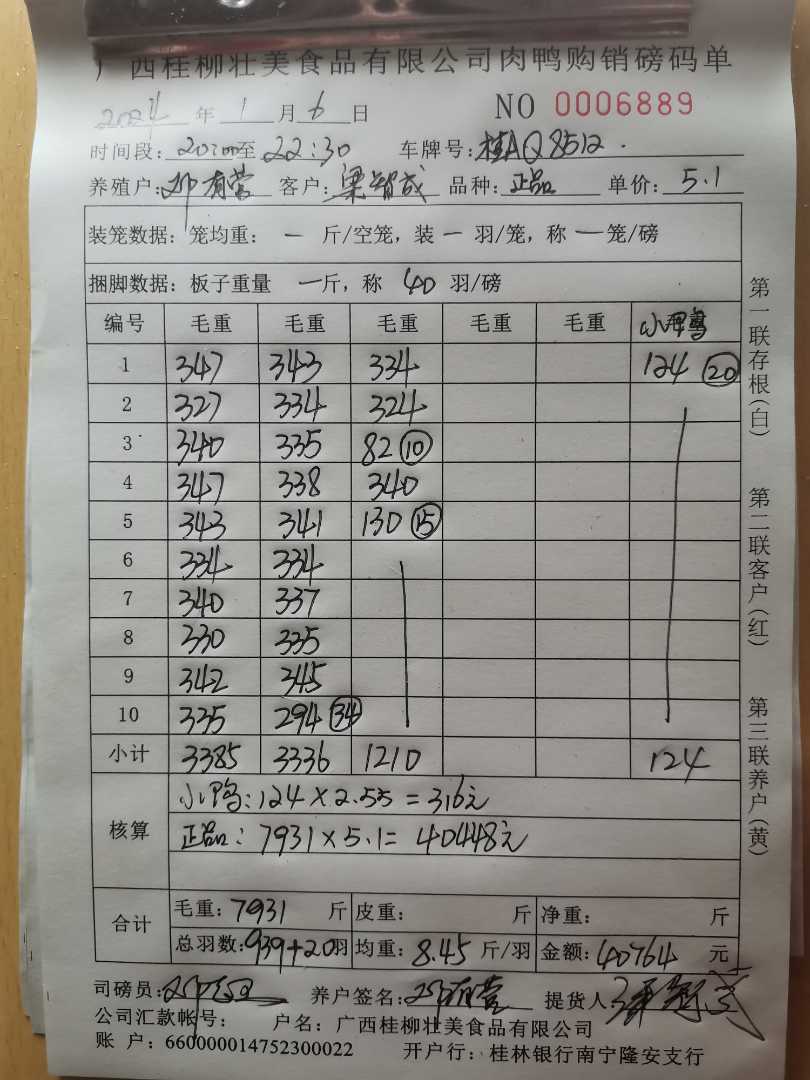 广西桂柳壮美食品有限公司肉鸭购销磅码单
2024年1月6日 NO 0006889
时间段:20:00至22:30 车牌号:桂AQ8512
养殖户:邓有营 客户:梁智成 品种:正品 单价:5.1
装笼数据:笼均重: 一 斤/空笼,装 一 羽/笼,称 一 笼/磅
捆脚数据:板子重量 一斤,称 40 羽/磅
编号 毛重 毛重 毛重 毛重 毛重 小鸭
1 347 343 334 124 20
2 327 334 324
3 340 335 82 10
4 347 338 340
5 343 341 130 15
6 334 334
7 340 337
8 330 335
9 342 345
10 335 294 34
小计 3385 3336 1210 124
核算
小鸭:124×2.55=316元
正品:7931×5.1=40448元
合计
毛重:7931 斤 皮重: 斤 净重: 斤
总羽数:939+20羽 均重:8.45 斤/羽 金额:40764 元
司磅员: 养户签名:邓有营 提货人:
公司汇款帐号: 户名:广西桂柳壮美食品有限公司
账 户:660000014752300022 开户行:桂林银行南宁隆安支行
第一联存根(白) 第二联客户(红) 第三联养户(黄)